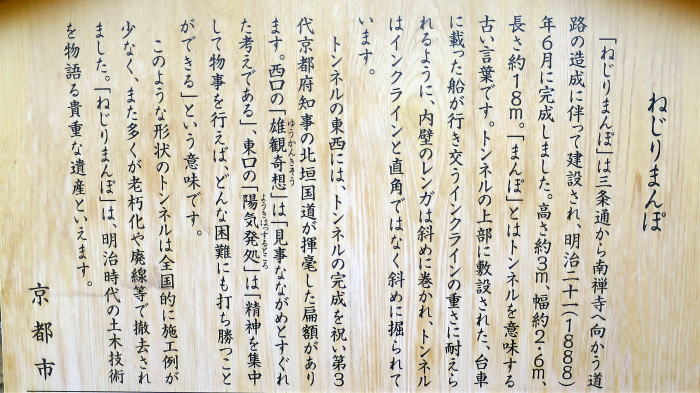 ねじりまんぽ
「ねじりまんぽ」は三条通から南禅寺へ向かう道
路の造成に伴って建設され、明治二十一(1888)
年6月に完成しました。高さ約3m、幅約2.6m、
長さ約18m。「まんぽ」とはトンネルを意味する
古い言葉です。トンネルの上部に敷設された、台車
に載った船が行き交うインクラインの重さに耐えら
れるように、内壁のレンガは斜めに巻かれ、トンネル
はインクラインと直角ではなく斜めに掘られて
います。
トンネルの東西には、トンネルの完成を祝い第3
代京都府知事の北垣国道が揮毫した扁額があり
ます。西口の「雄観奇想」は「見事なながめとすぐれ
ゆうかんきそう
た考えである」、東口の「陽気発処」は「精神を集中
ようきはっするところ
して物事を行えば、どんな困難にも打ち勝つこと
ができる」という意味です。
このような形状のトンネルは全国的に施工例が
少なく、また多くが老朽化や廃線等で撤去され
ました。「ねじりまんぽ」は、明治時代の土木技術
を物語る貴重な遺産といえます。
京都市